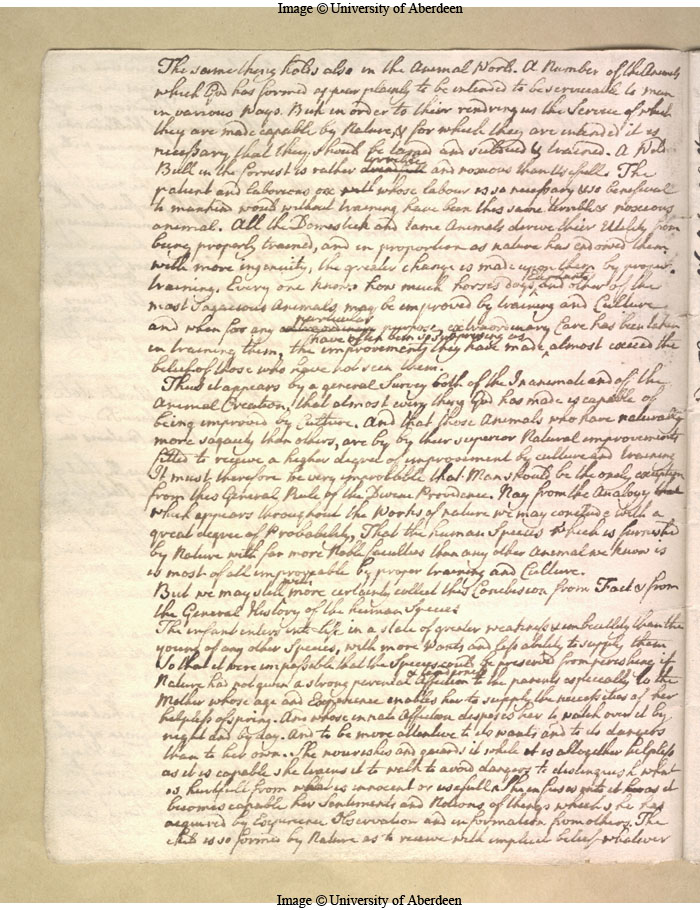 Image © University of Aberdeen
The same thing holds also in the Animal World. A Number of the Animals
which God has formed appear plainly to be intended to be serviceable to man
in various ways. But in order to their rendring us the Service of which
they are made capable by Nature, & for which they are intended it is
necessary that they should be tamed and subdued & trained. A Wild
Bull in the forrest is rather terrible and noxious than Usefull. The
patient and laborious ox whose labour is so necessary & so beneficial
to mankind woud without training have been this same terrible & noxious
animal. All the Domestick and tame Animals derive their Utility from
being properly trained, and in proportion as nature has endowed them
with more ingenuity, the greater change is made upon them by proper
training. Every one knows how much horses dogs, Elephants and other of the
most Sagacious Animals may be improved by training and Culture
and when for any particular purpose extraordinary Care has been taken
in training them, the improvements they have made have often been so surprising as almost exceed the
belief of those who have not seen them.
Thus it appears by a general Survey both of the Inanimate and of the
Animal Creation, that almost every thing God has made is capable of
being improved by Culture. And that those Animals who have naturally
more sagacity than others, are by by their superior Natural improvements
fitted to receive a higher degree of improvement by culture and training
It must therefore be very improbable that Man should be the only exception
from this General Rule of the Divine Providence. Nay from the Analogy
which appears throughout the Works of nature we may conclude with a
great degree of Probability, That the human Species which is furnished
by Nature with far more Noble faculties than any other Animal we know is
is most of all improveable by proper training and Culture.
But we may still with more certainty collect this Conclusion from Fact & from
the General History of the human Species
The infant enters into Life in a state of greater weakness & imbecillity than the
young of any other Species, with more Wants and less ability to supply them
So that it were impossible that the Species could be preserved from perishing if
Nature had not given a strong parental affection & tenderness to the parents especially to the
Mother whose age and Experience enables her to supply the necessities of her
helpless ofspring. And whose innate Affection disposes her to watch over it by
night and by day. And to be more attentive to its wants and to its dangers
than to her own. She nourishes and guards it while it is altogether helpless
as it is capable she trains it to walk to avoid dangers to distinguish what
is hurtfull from what is innocent or usefull. She infuses into it as it
becomes capable her Sentiments and Notions of things which she has
acquired by Experience Observation and information from others. The
child is so formed by Nature as to receive with implicit belief whatever
Image © University of Aberdeen